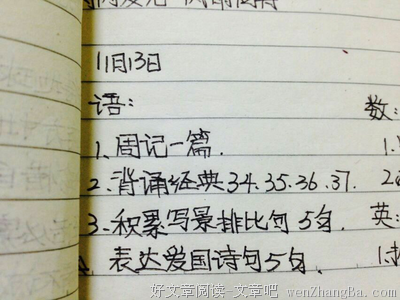 11日13日
语:
数:
1、周记一篇.
2、背诵经典34.35.36.37.
3、积累写景排比句 5句.
英:
表达爱国诗句5句、
好文章阅读-文章吧 wenZhangBa.com